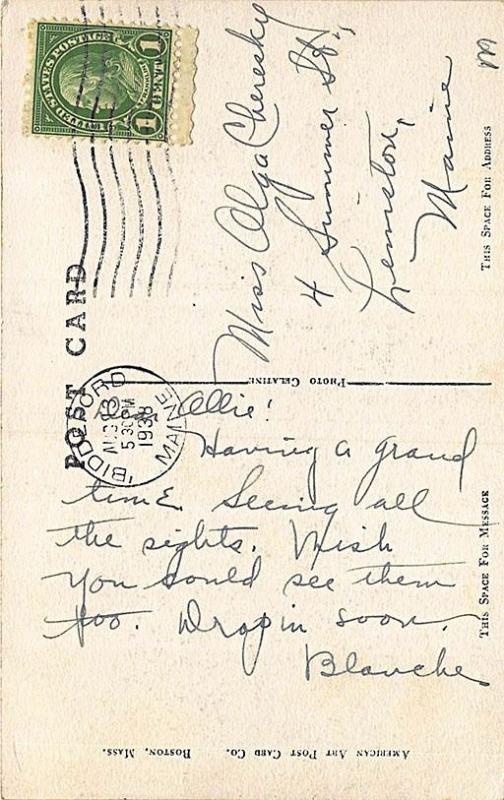 UNITED STATES POSTAGE
1 CENT 1
POST CARD
BIDDEFORD
AUG 13
5 30 PM
1938
MAINE
Miss Olga Cheresky
4 Summer St.,
Lewiston,
Maine
THIS SPACE FOR ADDRESS
PHOTO GELATINE
Dear Ollie!
Having a grand
time. Seeing all
the sights. Wish
you could see them
too. Drop in soon.
Blanche
THIS SPACE FOR MESSAGE
AMERICAN ART POST CARD CO. BOSTON, MASS.